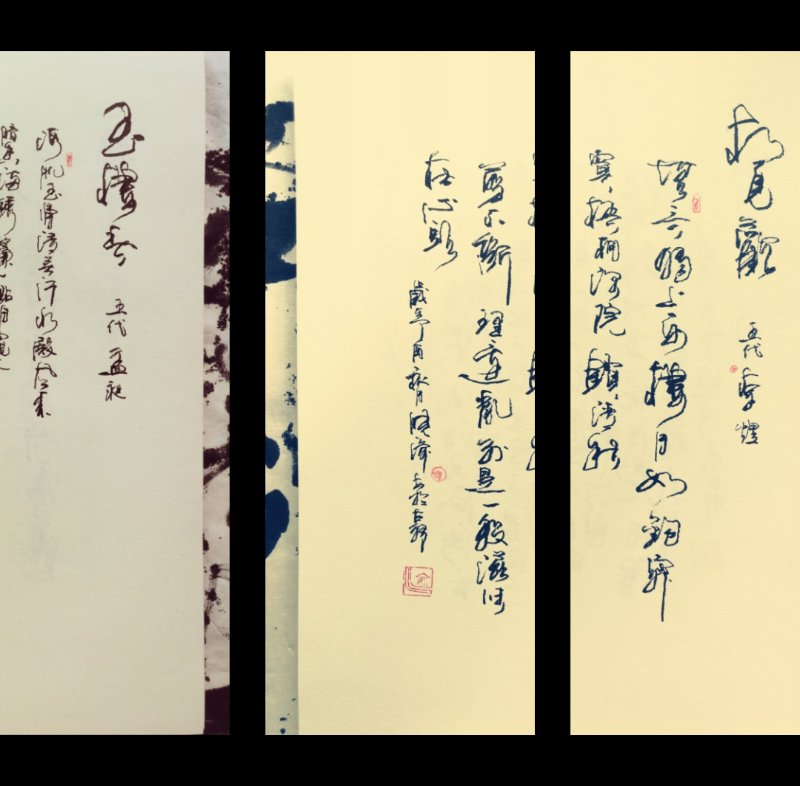 相見歡
五代 李煜
無言獨上西樓月如鉤寂
寞梧桐深院鎖清秋
剪不斷理還亂別是一般滋味
在心頭
玉樓春
五代 孟昶
冰肌玉骨清無汗水殿風來
暗香滿繡簾一點月窺